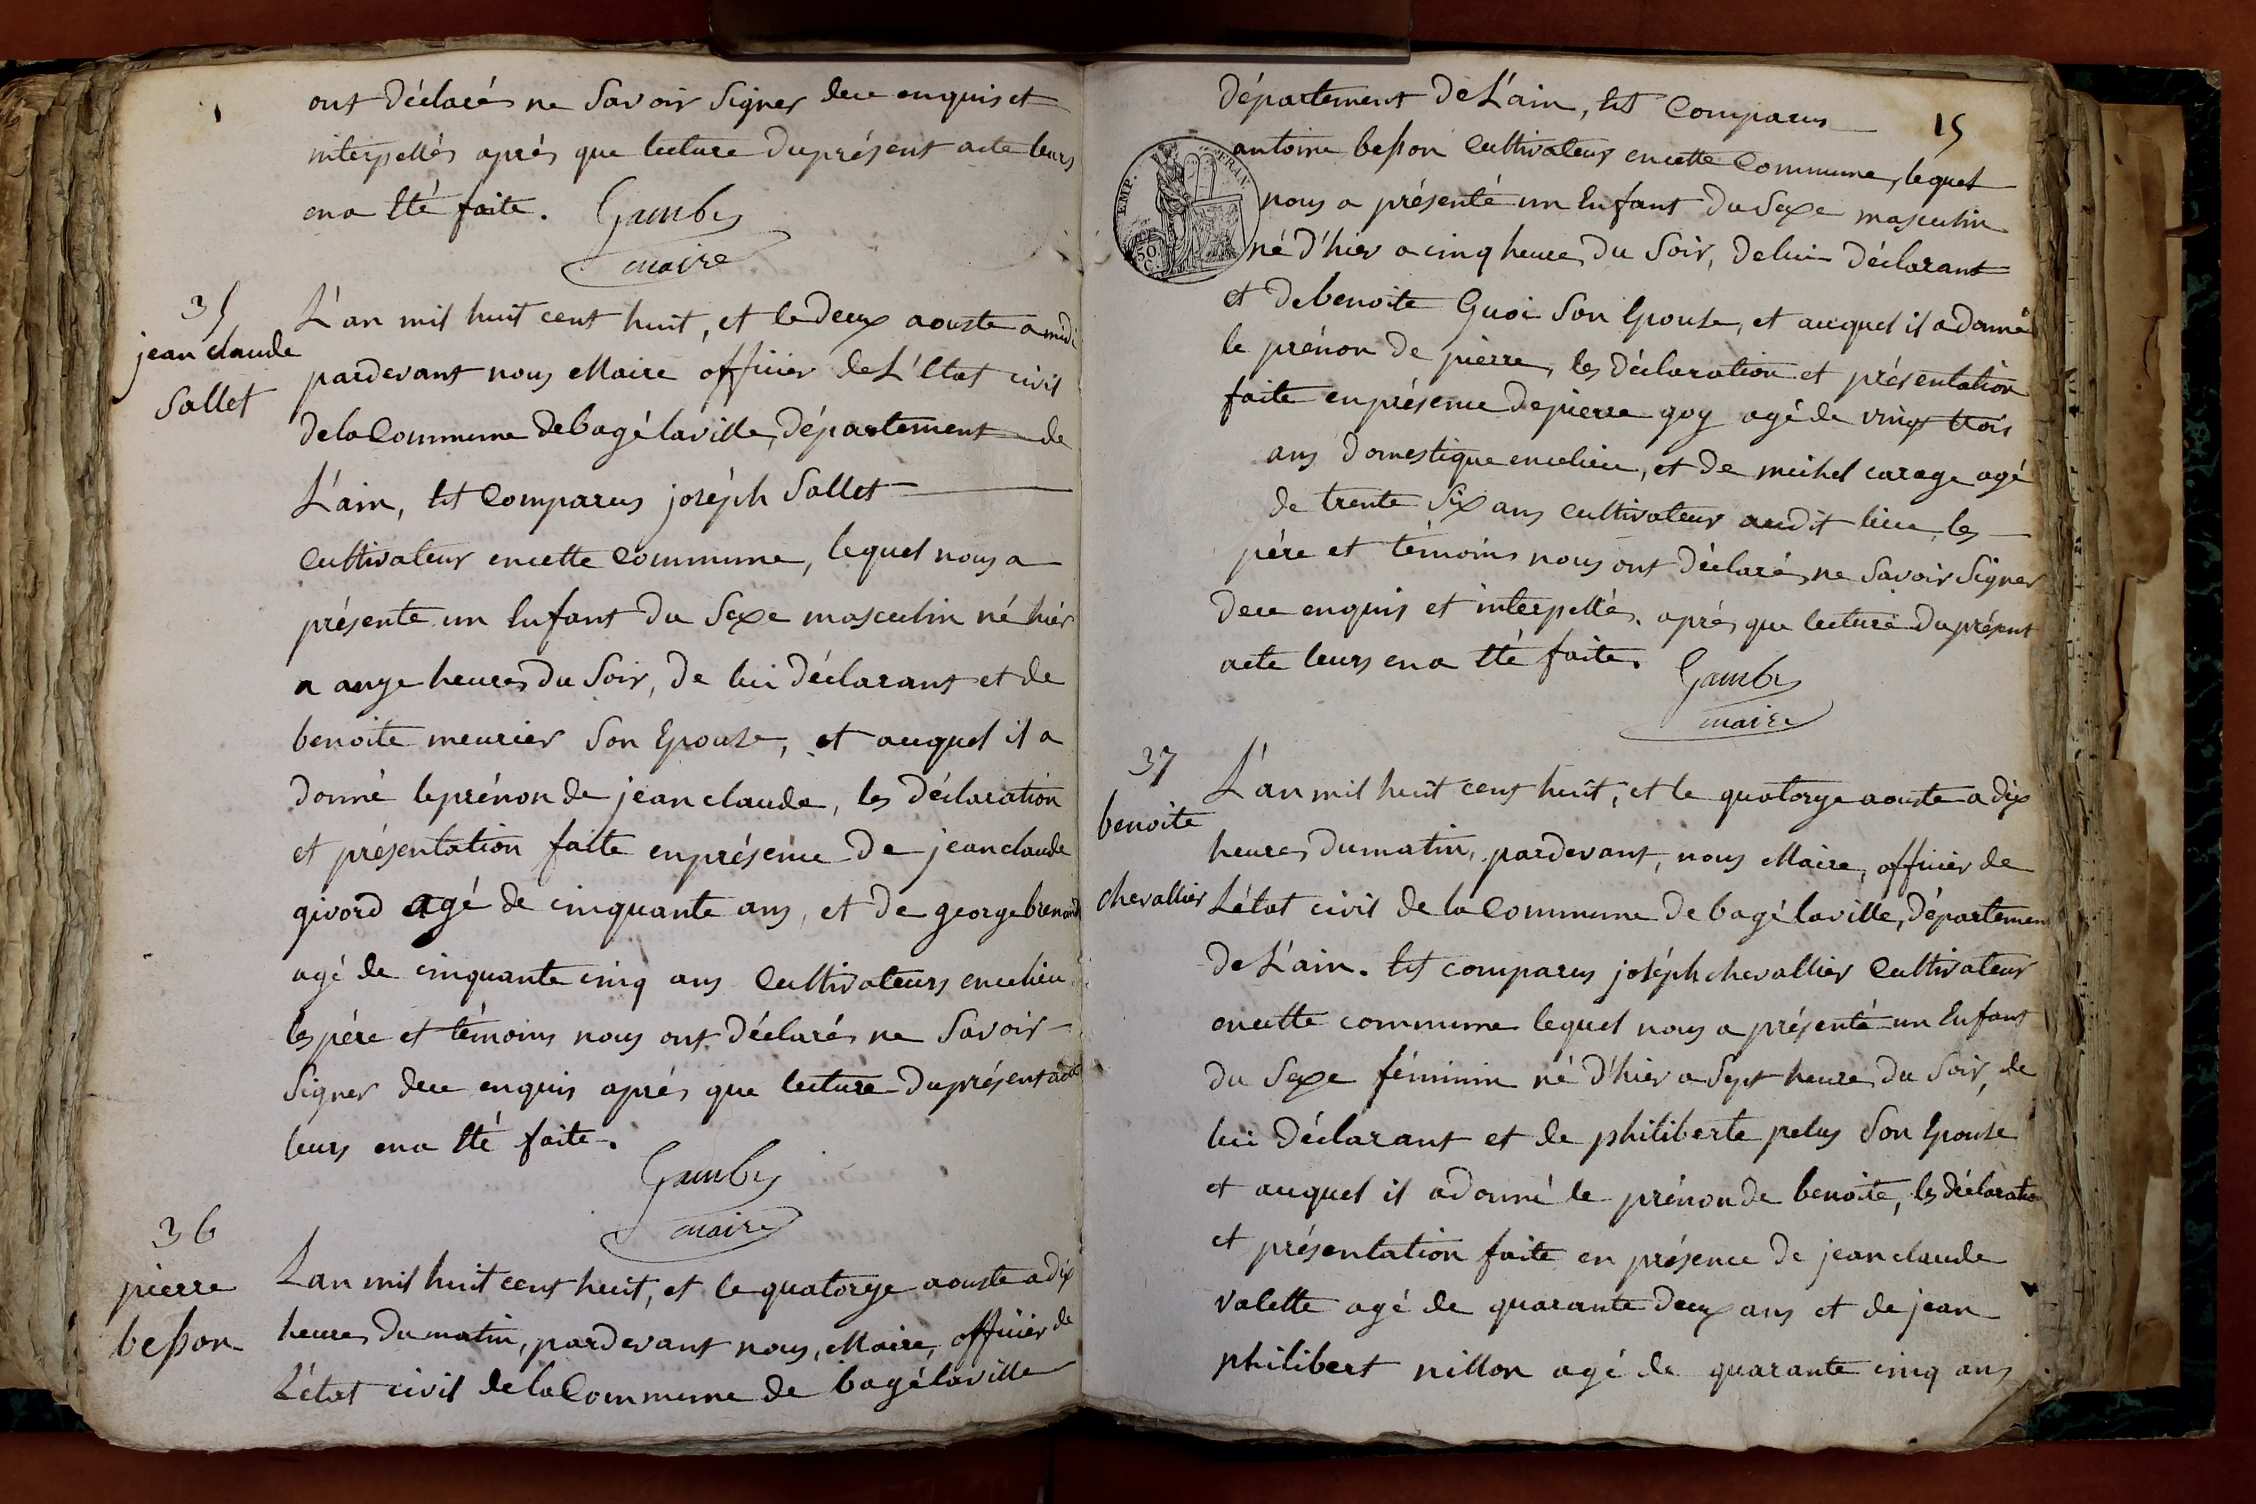 ont déclarés ne Savoir Signer dece enquis et
interpellés aprés que lecture du présent acte leurs
en a Eté faite. Gambs
maire
35
jean claude
Sallet
L'an mil huit cent huit, et le deux aouste a midi
pardevant nous Maire officier de L'Etat civil
de la Commune de bagé laville, département de
L'ain, Est Comparus joséph Sallet
Cultivateur en cette Commune, lequel nous a
présente un Enfant du Sexe masculin né hièr
a onze heures du Soir, de lui déclarant et de
benoite meurier Son Epouse, et auquel il a
donné le prénon de jean claude, les déclaration
et présentation faite en présence de jean claude
givord agé de cinquante ans, et de george brenond
agé de cinquante cinq ans Cultivateurs en ce lieu
les pére et témoins nous ont déclarés ne Savoir
Signer dece enquis aprés que lecture du présent acte
leurs en a Eté faite.
Gambs
maire
36
pierre
besson
L'an mil huit cent huit, et le quatorze aouste a dix
heures du matin, pardevant nous, Maire, officier de
L'état civil de la Commune de bagé laville
15
département de L'ain, Est Comparus
EMP. FRAN.
50
C.
antoine besson Cultivateur en cette Commune, lequel
nous a présenté un Enfant du Sexe masculin
né d'hier a cinq heures du Soir, de lui déclarant
et de benoite Guoi Son Epouse, et auquel il a donné
le prénon de pierre, les déclaration et présentation
faite en présence de pierre goy agé de vingt trois
ans domestique en ce lieu, et de michel carage agé
de trente Six ans Cultivateur audit lieu, les
pére et témoins nous ont déclarés ne Savoir Signer
dece enquis et interpellés. aprés que lecture du présent
acte leurs en a Eté faite. Gambs
maire
37
benoite
chevallier
L'an mil huit cent huit, et le quatorze aouste a dix
heures du matin, pardevant, nous Maire, officier de
L'état civil de la Commune de bagé laville, départemen
de L'ain. Est comparus joséph chevallier Cultivateur
en cette commune lequel nous a présenté un Enfant
du Sexe féminin né d'hier a Sept heures du Soir, de
lui déclarant et de philiberte pelus Son Epouse
et auquel il a donné le prénon de benoite, les déclaration
et présentation faite en présence de jean claude
valette agé de quarante deux ans et de jean
philibert nillon agé de quarante cinq ans